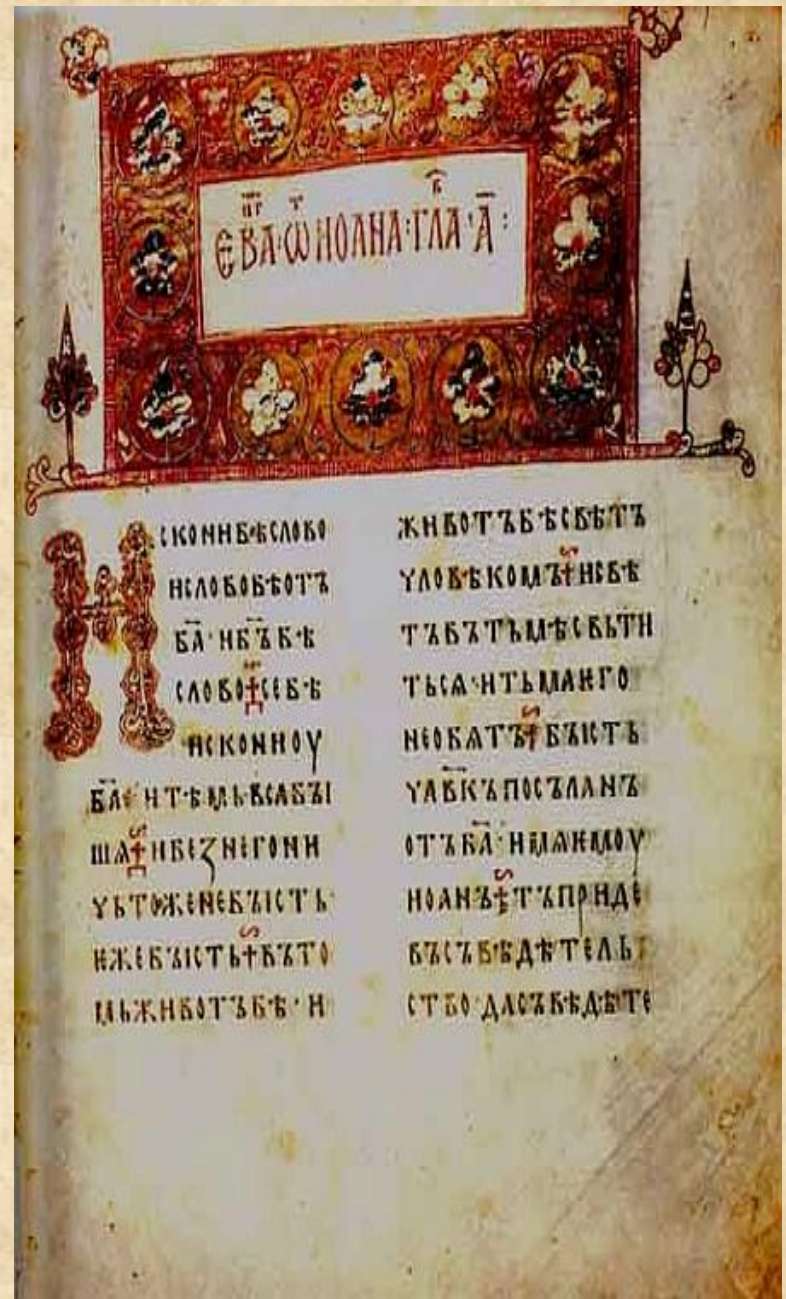 ЄВАНГ · Ѿ ИОАНА · ГЛАВ · А҃ :
ИСКОНИБѢСЛОВО
ИСЛОВОБѢОТЪ
БА҃ · ИБ҃ЪБѢ
СЛОВО СЕБѢ
ИСКОНИОУ
БА҃ ИТѢМЬВСАБЫ
ШѦ ИБЕЗНЕГОНИ
ЧЬТОЖЕНЕБЫСТЬ
ЕЖЕБЫСТЬ ВЪТО
МЬЖИВОТЪБѢ · И
ЖИВОТЪБѢСВѢТЪ
ЧЛОВѢКОМЪ ИСВѢ
ТЪВЪТЬМѢСВЬТИ
ТЬСѦ · ИТЬМАЕГО
НЕОБѦТЪ БЫСТЬ
ЧЛВ҃КЪПОСЪЛАНЪ
ОТЪБА҃ · ИМѦЕМОУ
ИОАНЪ ТЪПРИДЕ
ВЪСЪВѢДѢТЕЛЬ
СТВО · ДАСЪВѢДѢТЕ